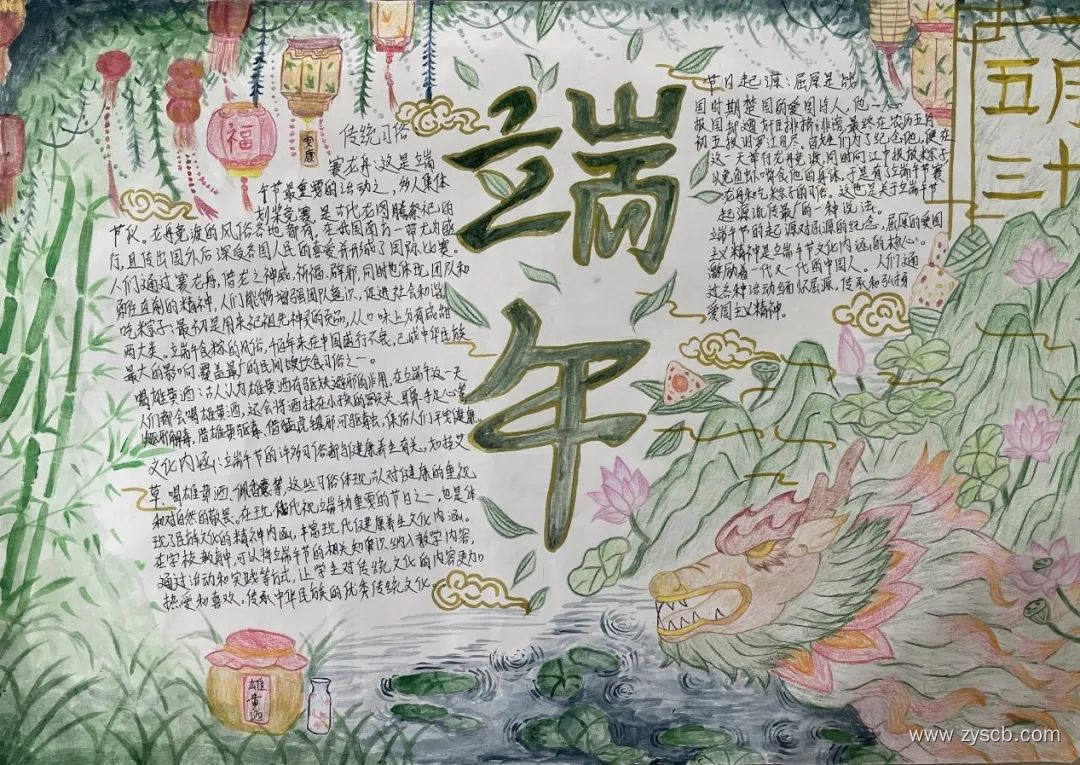 端午
福
安康
五月
三十
传统习俗：
赛龙舟：这是端
午节最重要的活动之一，多人集体
划桨竞赛，是古代龙图腾祭祀的
节仪。龙舟竞渡的风俗各地都有，在我国南方一带尤为盛
行，且传出国外后深受各国人民的喜爱并形成了国际比赛。
人们通过赛龙舟，借龙之神威，祈福、辟邪，同时也体现团队和
勇往直前的精神，人们能够增强团队意识，促进社会和谐
吃粽子：最初是用来祀祖先神灵的贡品，从口味上分有咸甜
两大类。端午食粽的风俗，千百年来在中国盛行不衰，已成中华民族
最大的影响覆盖最广的民间饮食习俗之一。
喝雄黄酒：古人认为雄黄酒有驱妖避邪的作用，在端午这一天
人们都会喝雄黄酒，还会将酒抹在小孩的额头、耳鼻、手足心等
文化内涵：端午节的许多习俗都与健康养生有关，如挂艾
草、喝雄黄酒、佩香囊等，这些习俗体现了人对健康的重视
和对自然的敬畏。在现代祝端午重要的节日之一，也是体
现了民族文化的精神内涵，丰富现代健康养生文化内涵。
在学校教育中，可以将端午节的相关知识纳入教学内容，
通过活动和实践等方式，让学生对传统文化的内容更加
热爱和喜欢，传承中华民族的优秀传统文化
节日起源：屈原是战
国时期楚国的爱国诗人，他一心
报国却遭奸臣排挤 最终在农历五月
初五投汨罗江自尽。百姓们为了纪念他，便在
这一天举行龙舟竞渡，同时向江中投放米粽子
以免鱼虾啃食他的身体，于是有了端午节赛
龙舟和吃粽子的习俗。这也是关于端午节
起源流传最广的一种说法。
端午节的起源对屈原的纪念，屈原的爱国
主义精神是端午节文化内涵的核心。
激励着一代又一代的中国人。人们通
过各种活动缅怀屈原，传承和弘扬
爱国主义精神。
雄黄酒
www.zyscb.com